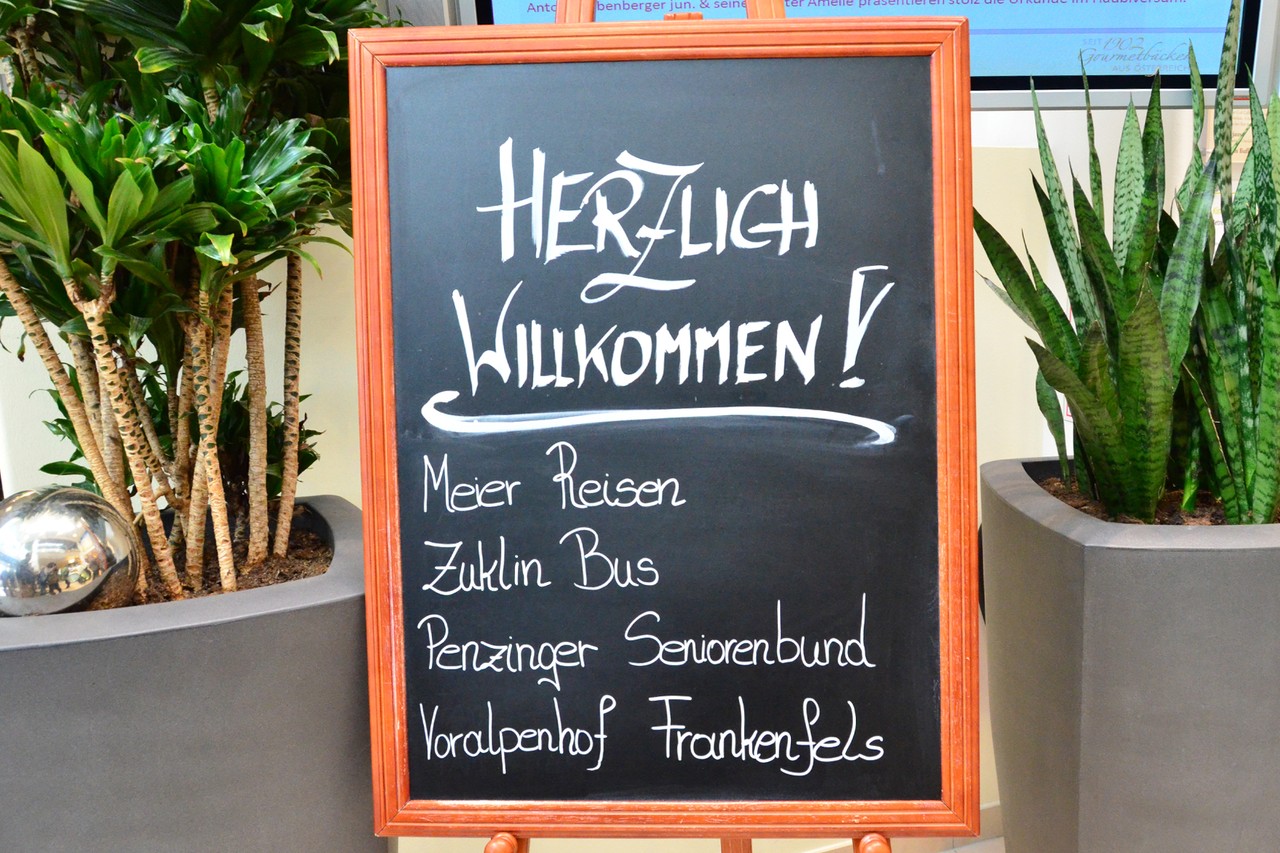 jun. & seine
Amelie präsentieren stolz die Urkunde im
SEIT 1902
Gourmetbäckerei
AUS ÖSTERREICH
HERZLICH
WILLKOMMEN!
Meier Reisen
Zuklin Bus
Penzinger Seniorenbund
Voralpenhof Frankenfels